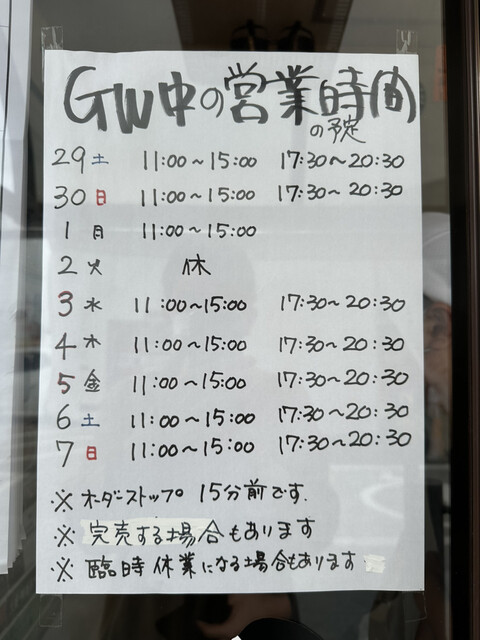 GW中の営業時間
の予定
29土 11:00〜15:00 17:30〜20:30
30日 11:00〜15:00 17:30〜20:30
1月 11:00〜15:00
2火 休
3水 11:00〜15:00 17:30〜20:30
4木 11:00〜15:00 17:30〜20:30
5金 11:00〜15:00 17:30〜20:30
6土 11:00〜15:00 17:30〜20:30
7日 11:00〜15:00 17:30〜20:30
※オーダーストップ 15分前です.
※完売する場合もあります
※臨時休業になる場合もあります